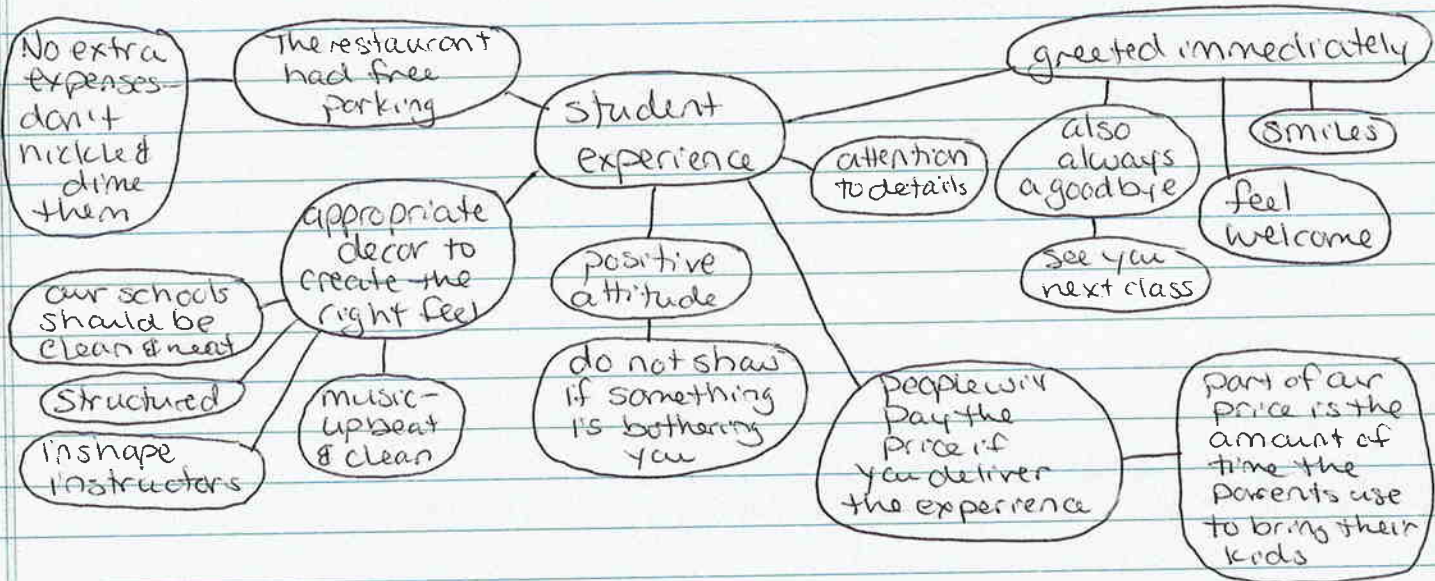 No extra
expenses-
don't
nickle &
dime
them
The restaurant
had free
parking
student
experience
greeted immediately
attention
to details
also
always
a goodbye
smiles
feel
welcome
see you
next class
appropriate
decor to
create the
right feel
our schools
should be
clean & neat
structured
inshape
instructors
music-
upbeat
& clean
positive
attitude
do not show
if something
is bothering
you
people will
pay the
price if
you deliver
the experience
part of our
price is the
amount of
time the
parents use
to bring their
kids